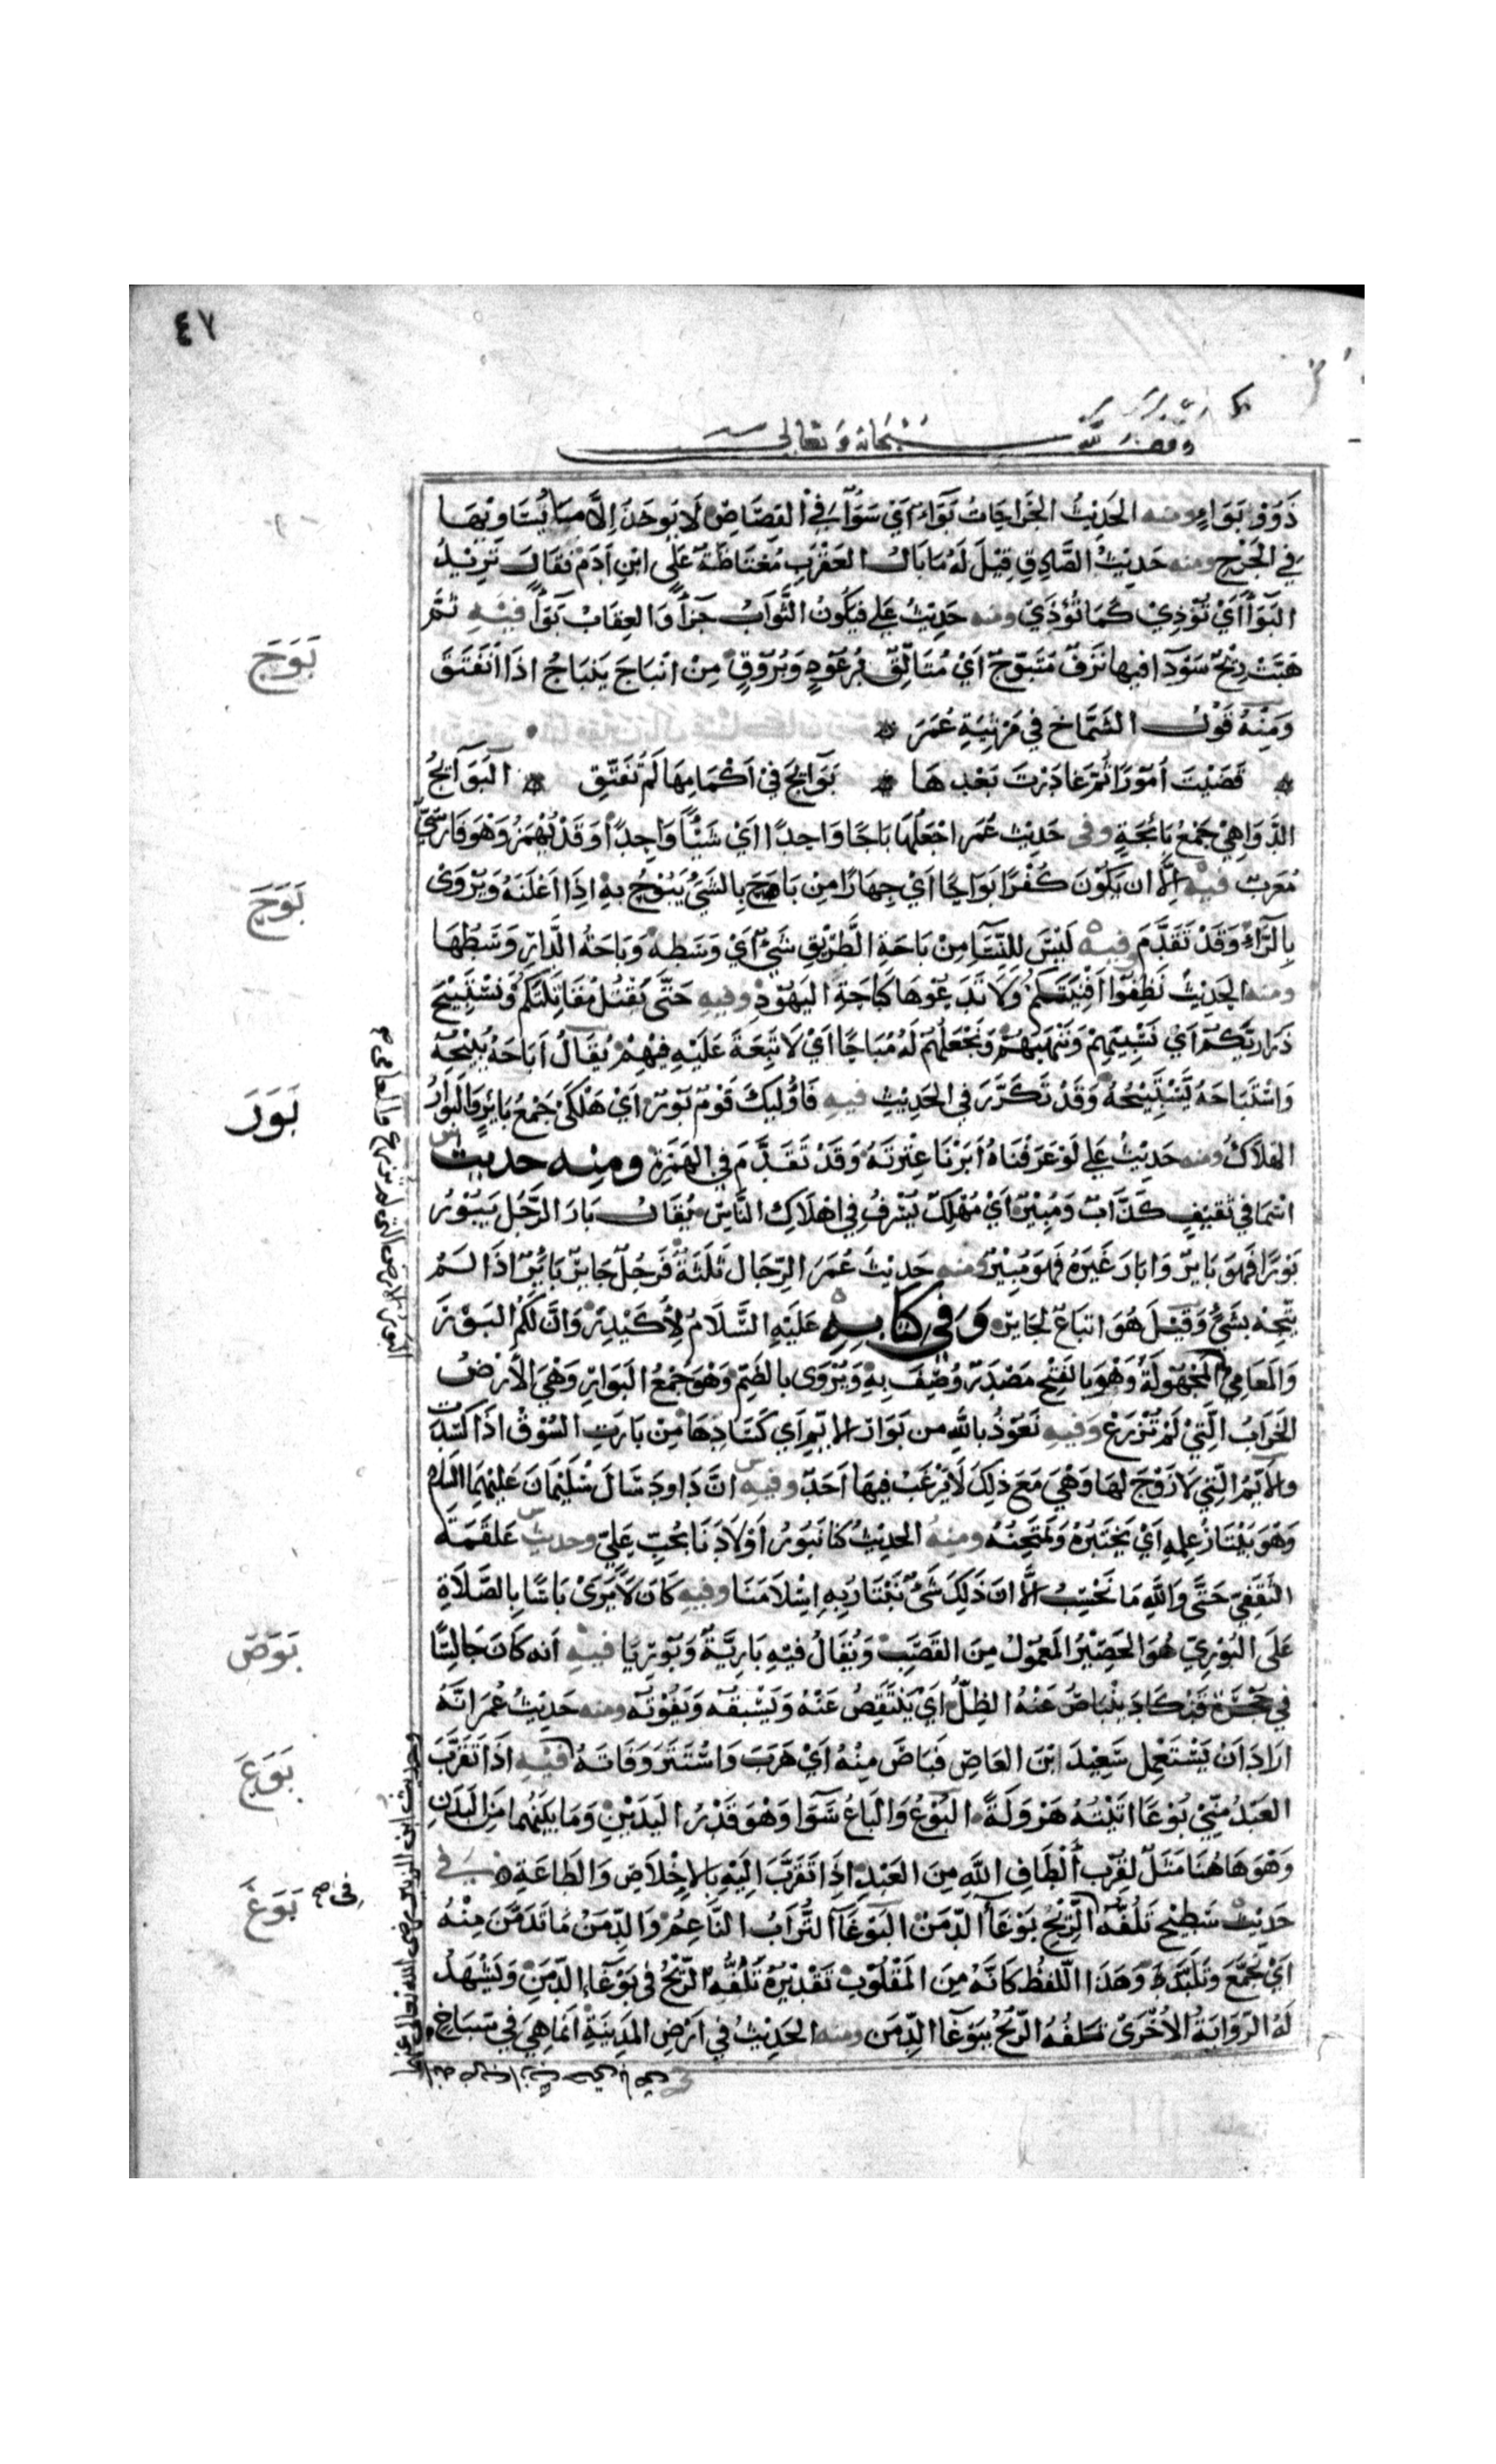 ٤٧
سبحانه وتعالى
ذَوُو بَوَاءٍ ومنه الحَدِيْثُ الجَرَاحَاتُ بَوَاءٌ اَيْ سَوَآءٌ فِي القِصَاصِ لَا يُوخَذُ اِلَّا مَا يُسَاوِيْهَا
فِي الجَرْحِ ومنه حَدِيْثُ الصَّادِقِ قِيْلَ لَهُ مَا بَالُ العَقْرَبِ مُغْتَاظَةً عَلَى ابْنِ اٰدَمَ فَقَالَ تُرِيْدُ
البَوَآءَ اَيْ تُؤْذِيْ كَمَا تُؤْذَي ومنه حَدِيْثُ عَلِي فيَكُونُ الثَّوَابُ جَزَآءً وَالعِقَابُ بَوَآءً فِيْهِ ثُمَّ
بَوَجَ
هَبَّتْ رِيْحٌ سَوْدَا فيها بَرْقٌ مُتَبَوِّجٌ اَيْ مُتَالِّقٌ بِرُعُوْدٍ وَبُرُوْقٍ مِنْ انْبَاجَ يَنْبَاجُ اذَا انْفَتَقَ
وَمِنْهُ قَوْلُ الشَّمَّاخِ فِي مَرْثِيَةِ عُمَرَ
قَضَيْتَ اُمُوْرًا ثُمَّ غَادَرْتَ بَعْدَهَا بَوَائِجَ فِيْ اَكْمَامِهَا لَمْ تُفَتَّقِ البَوَائِجُ
الدَّوَاهِيْ جَمْعُ بَائِجَةٍ وفي حَدِيْثِ عُمَر اجْعَلْهَا بَاجًا وَاحِدًا اَيْ شَيْئًا وَاحِدًا وَقَدْ يُهْمَزُ وَهُوَ فَارِسِيٌّ
بَوَحَ
مُعَرَّبٌ فيه اِلَّا ان يَكُوْنَ كُفْرًا بَوَاحًا اَيْ جِهَارًا مِنْ بَاحَ بِالشَّيْءِ يَبُوْحُ بِهِ اِذَا اَعْلَنَهُ وَيُرْوَى
بِالرَّاءِ وَقَدْ تَقَدَّمَ وفيه لَيْسَ للنِّسَآءِ مِنْ بَاحَةِ الطَّرِيْقِ شَيْءٌ اَيْ وَسَطِهِ وَبَاحَةُ الدَّارِ وَسَطُهَا
ومنه الحَدِيْثُ نَظِّفُوْا اَفْنِيَتَكُمْ وَلَا تَدَعُوْهَا كَبَاحَةِ اليَهُوْدِ وفيهِ حَتَّى يَقْتُلَ مُقَاتِلَتَكُمْ وَنَسْتَبِيْحَ
ذَرَارِيَّكُمْ اَيْ نَسْبِيَهُمْ وَنَنْهَبَهُمْ وَنَجْعَلَهُمْ لَهُ مُبَاحًا اَيْ لَا تَبِعَةَ عَلَيْهِ فِيْهِمْ يُقَالُ اَبَاحَهُ يُبِيْحُهُ
بَوَرَ
وَاسْتَبَاحَهُ يَسْتَبِيْحُهُ وَقَدْ تَكَرَّرَ فِي الحَدِيْثِ فيهِ فَاُولٰئِكَ قَوْمٌ بُوْرٌ اَيْ هَلْكَى جَمْعُ بَايِرٍ وَالْبَوَارُ
الهَلَاكُ ومنه حَدِيْثُ عَلِي لَوْ عَرَفْنَاهُ اَبَرْنَا عِتْرَتَهُ وَقَدْ تَقَدَّمَ فِي الهَمْزَةِ ومنه حديث
اسْمَا فِي ثَقِيْفٍ كَذَّابٌ وَمُبِيْرٌ اَيْ مُهْلِكٌ يُسْرِفُ فِي اِهْلَاكِ النَّاسِ يُقَالُ بَارَ الرَّجُلُ يَبُوْرُ
بَوْرًا فَهُوَ بَايِرٌ وَابَارَ غَيْرَهُ فَهُوَ مُبِيْرٌ ومنه حَدِيْثُ عُمَرَ الرِّجَال ثَلٰثَةٌ فَرَجُلٌ حَايِرٌ بَايِرٌ اذَا لَمْ
يَتَّجِهْ بِشَيْءٍ وَقِيْلَ هُوَ اتبَاعٌ لِحَايِرٍ وَفِي كِتَابِهِ عَلَيْهِ السَّلَامُ لِاُكَيْدِرٍ وَانَّ لَكُمُ البَوْرَ
وَالمَعَامِيَ المَجْهُوْلَةُ وَهُوَ بِالفَتْحِ مَصْدَرٌ وُصِفَ بِهِ وَيُرْوَى بِالضَّمِّ وَهُوَ جَمْعُ البَوَارِ وَهْيَ الأَرْضُ
الخَرَابُ الَّتِيْ لَمْ تُزْرَعْ وَفِيهِ نَعُوْذُ بِاللّٰهِ مِن بَوَارِ الاَيِّمِ اَي كَسَادِهَا مِنْ بَارَتِ السُّوْقُ اذَا كَسَدَت
والاَيِّمُ الَّتِيْ لَا زَوْجَ لهَا وَهْيَ مَعَ ذٰلِكَ لَا يَرْغَبُ فِيْهَا اَحَدٌ وفيهِ انَّ دَاودَ سَالَ سُلَيْمَانَ عَلَيْهِمَا السَّلَام
وَهْوَ يَبْتَارُ عِلْمَهُ اَيْ يَخْتَبِرُهُ وَيَمْتَحِنُهُ ومِنْهُ الحَدِيْثُ كُنَّا نَبُوْرُ اَوْلَادَنَا بحُبِّ عَلِيّ وحديث عَلْقَمَةَ
الثَّقَفِي حَتَّى وَاللّٰهِ مَا نَحْسِبُ اِلَّا اَنَّ ذٰلِكَ شَيْءٌ يُبْتَارُ بِهِ اِسْلَامُنَا وفيهِ كَانَ لَا يَرَى بَاسًا بِالصَّلَاةِ
بَوَصَ
عَلَى البُوْرِيّ هُوَ الحَصِيْرُ المَعْمُوْلُ مِنَ القَصَبِ وَيُقَالُ فِيْهِ بَارِيَّةٌ وَبُوْرِيَا فيهِ اَنهُ كَانَ جَالِسًا
فِي حُجْرَةٍ قَدْ كَادَ يَنْبَاصُ عَنْهُ الظِلُّ اَيْ يَنْتَقِصُ عَنْهُ وَيَسْبِقُهُ وَيَفُوْتُهُ ومنه حَدِيْثُ عُمَرَ انَّهُ
بَوَعَ
ارَادَ اَنْ يَسْتَعْمِلَ سَعِيْدَ ابْنَ العَاصِ فَبَاصَ مِنْهُ اَيْ هَرَبَ وَاسْتَتَرَ وَفَاتَهُ فيهِ اذَا تَقَرَّبَ
العَبْدُ مِنِّيْ بُوْعًا اتَيْتُهُ هَرْوَلَةً البَوْعُ وَالبَاعُ سَوَا وَهُوَ قَدْرُ اليَدَيْنِ وَمَا بَيْنَهُمَا مِنَ البَدَنِ
بَوَغَ
وَهْوَ هَاهُنَا مَثَلٌ لِقُرْبِ أَلْطَافِ اللّٰهِ مِنَ العَبْدِ اِذَا تَقَرَّبَ اِلَيْهِ بِالاِخْلَاصِ وَالطَاعَةِ فِي
حَدِيْث سَطِيْحٍ تَلُفُّهُ الرِّيْحُ بَوْغَآءُ الدِّمَنْ البَوْغَآءُ التُّرَابُ النَّاعِمُ وَالدِّمَنُ مَا تَدَمَّنَ مِنْهُ
اَيْ تَجَمَّعَ وَتَلَبَّدَ وَهٰذَا اللَّفْظُ كَانَّهُ مِنَ المَقْلُوْبِ تَقْدِيْرُهُ تَلُفُّهُ الرِّيْحُ فِي بَوْغَاءِ الدِّمَنِ وَيَشْهَدُ
لَهُ الرِّوَايَةُ الاُخْرَى تَلُفُّهُ الرِّيْحُ بِبَوْغَا الدِّمَن ومنه الحَدِيْثُ فِي اَرْضِ المَدِيْنَةِ اِنَّمَا هِيَ فِي سِبَاخٍ
وحديث ابن الزبير رضي الله تعالى عنهما